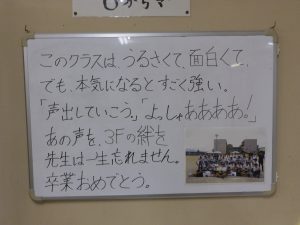 このクラスは、うるさくて、面白くて、
でも、本気になるとすごく強い。
「声出していこう」「よっしゃあああぁ!」
あの声を、3Fの絆を
先生は一生忘れません。
卒業おめでとう。